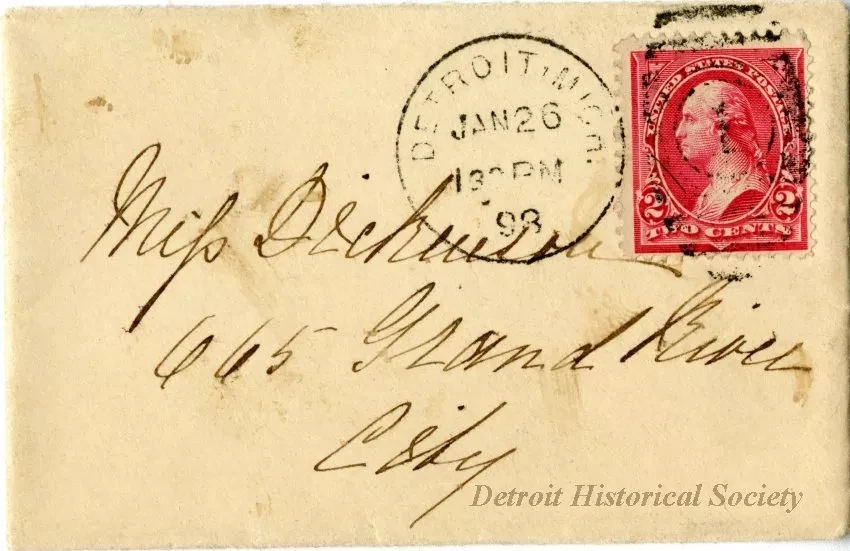 DETROIT, MICH.
JAN 26
130 PM
98
UNITED STATES POSTAGE
2 2
TWO CENTS
Miss Dickinson
665 Grand River
City
Detroit Historical Society